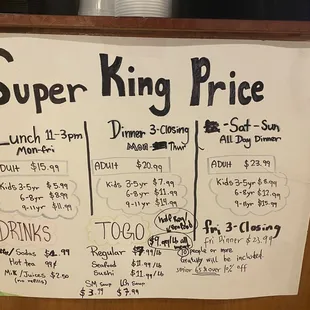 Super King Price
Lunch 11-3pm
Mon-fri
ADUlt $15.99
Kids 3-5yr $5.99
6-8yr $8.99
9-11yr $11.99
Dinner 3-Closing
Mon- Thur
ADUlt $20.99
Kids 3-5yr $7.99
6-8yr $11.99
9-11yr
-Sat-Sun
All Day Dinner
ADUlt $23.99
Kids 3-5yr $8.99
6-8yr $12.99
9-11yr $15.99
fri 3-Closing
fri Dinner $23.99
10 people or more
Gratuity will be included.
senior 65 & over 15% off
DRINKS
Sodas
Hot tea 99¢
Milk/Juices $2.50
(no refills)
TOGO
Regular $7.99/lb
Seafood $11.99/lb
Sushi $11.99/lb
SM soup
$3.99
LG Soup
$7.99
$9.99/lb all